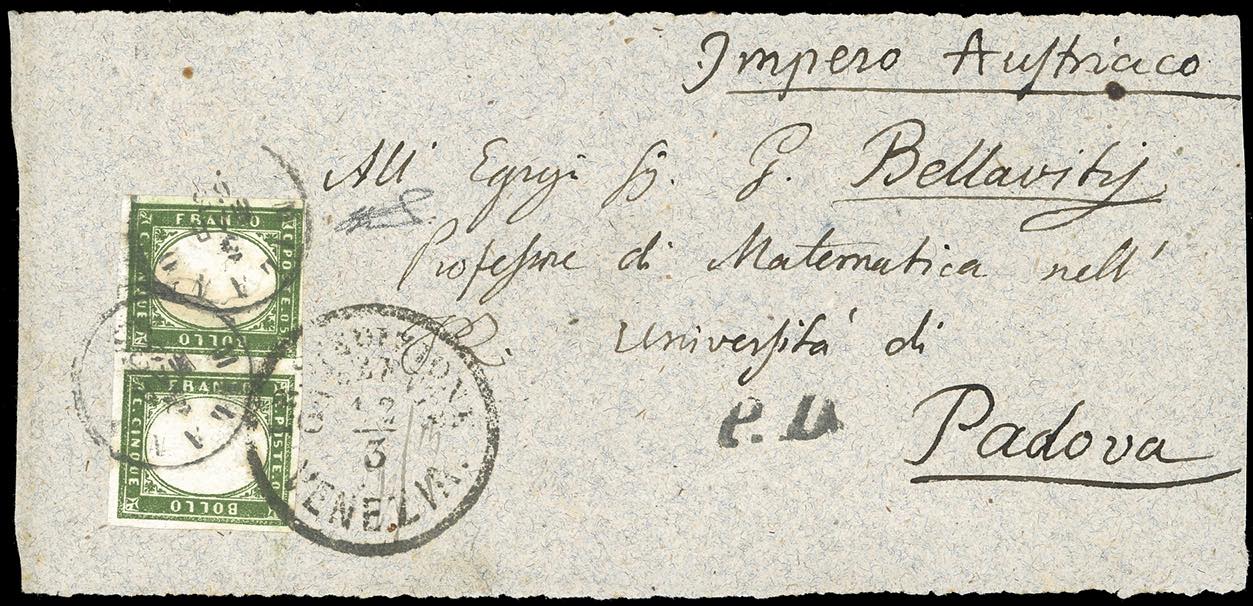 Impero Auſtriaco
All' Egregi Sg. G. Bellavitis
Profeſsore di Matematica nell'
Univerſità di
Padova
P.D.
FRANCO
C. POSTE. 05
C. CINQUE
BOLLO
FRANCO
C. POSTE. 0
C. CINQUE
BOLLO
12
3
VENEZIA.